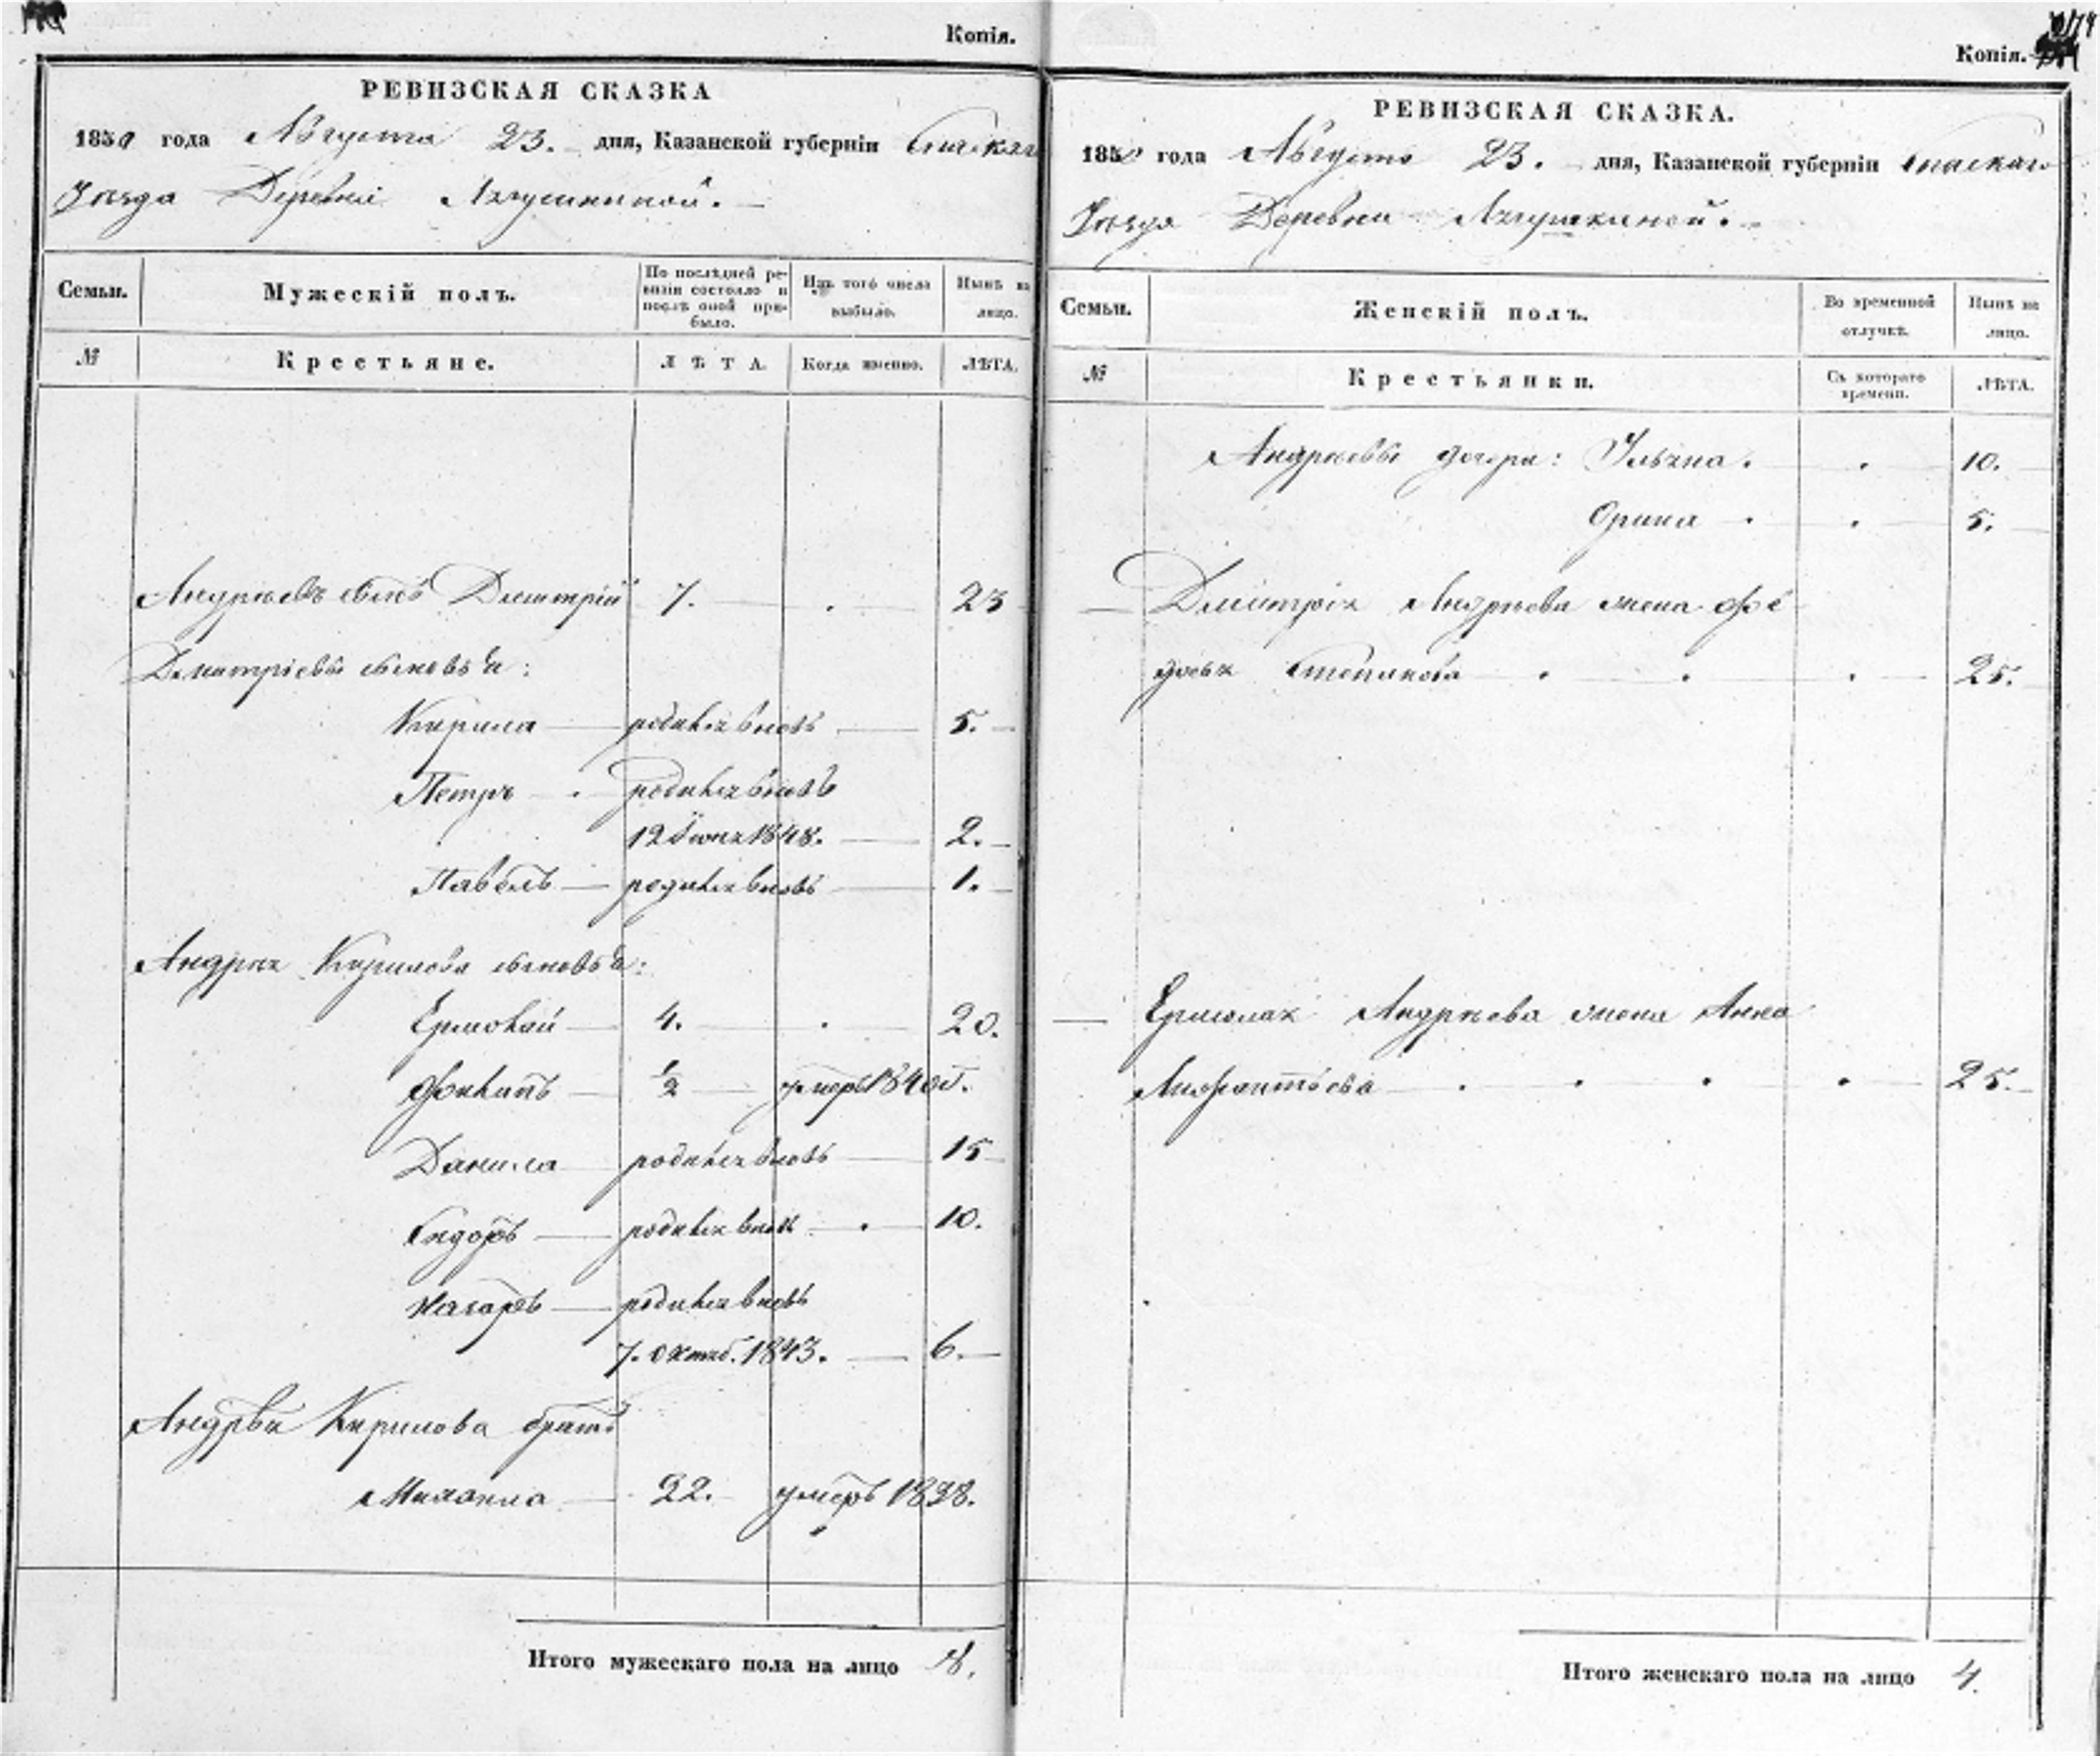 Копія.
РЕВИЗСКАЯ СКАЗКА
1850 года Августа 23. дня, Казанской губерніи Спаскаго
Уѣзда Деревни
Семьи.
Мужескій полъ.
По послѣдней ре-
визіи состояло и
послѣ оной при-
было.
Изъ того числа
выбыло.
Нынѣ на
лицо.
№
Крестьяне.
ЛѢТА.
Когда именно.
ЛѢТА.
Андрѣевъ сынъ Дмитрій 7. 23
Дмитріевы сыновья:
Кирила родился вновь 5.
Петръ родился вновь
12 Іюня 1848. 2.
Павелъ родился вновь 1.
Андрея Кирилова сыновья:
Ермолай 4. 20.
Филипъ 1/2 умеръ 1840
Данила родился вновь 15
Сидоръ родился вновь 10.
Назаръ родился вновь
7. Октяб. 1843. 6.
Андрея Кирилова братъ
Михаила 22. умеръ 1838.
Итого мужескаго пола на лицо 8.
Копія.
РЕВИЗСКАЯ СКАЗКА.
1850 года Августа 23. дня, Казанской губерніи Спаскаго
Уѣзда Деревни
Семьи.
Женскій полъ.
Во временной
отлучкѣ.
Нынѣ на
лицо.
№
Крестьянки.
Съ котораго
времени.
ЛѢТА.
Андрѣевы дочери: Ульяна. 10.
Орина 5.
Дмитрія Андрѣева жена Фе
досья Степанова 25.
Ермолая Андрѣева жена Анна
25.
Итого женскаго пола на лицо 4.